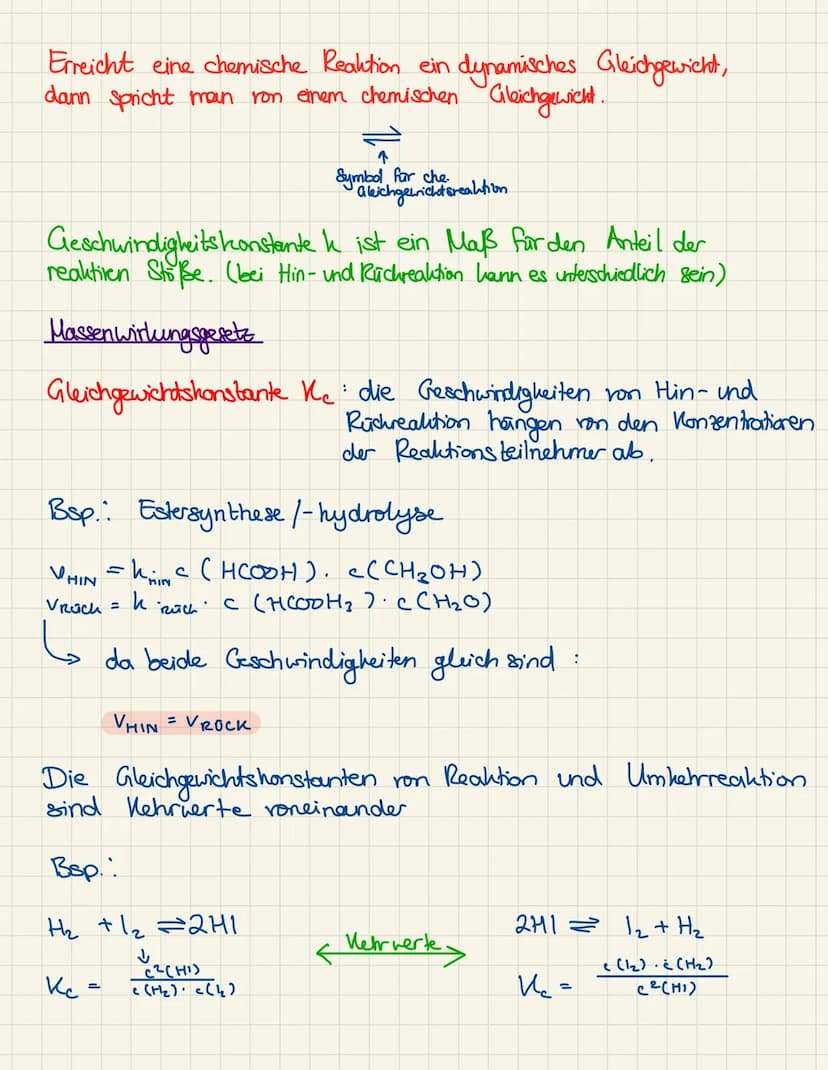 Erreicht eine chemische Reaktion ein dynamisches Gleichgewicht,
dann spricht man von einem chemischen Gleichgewicht.
⇌
↑
Symbol für che.
Gleichgewichtsreaktion
Geschwindigkeitskonstante k ist ein Maß für den Anteil der
reaktiven Stöße. (bei Hin- und Rückreaktion kann es unterschiedlich sein)
Massenwirkungsgesetz
Gleichgewichtskonstante Kc : die Geschwindigkeiten von Hin- und
Rückreaktion hängen von den Konzentrationen
der Reaktionsteilnehmer ab.
Bsp.: Estersynthese /-hydrolyse
V HIN = k HIN c (HCOOH) · c(CH₂OH)
V RÜCK = k rück · c (HCOOH₂) · c(H₂O)
↳ da beide Geschwindigkeiten gleich sind :
V HIN = V RÜCK
Die Gleichgewichtskonstanten von Reaktion und Umkehrreaktion
sind Kehrwerte voneinander
Bsp.:
H₂ + I₂ ⇌ 2HI
↓
Kc = c²(HI) / c(H₂) · c(I₂)
← Kehrwerte →
2HI ⇌ I₂ + H₂
Kc = c(I₂) · c(H₂) / c²(HI)